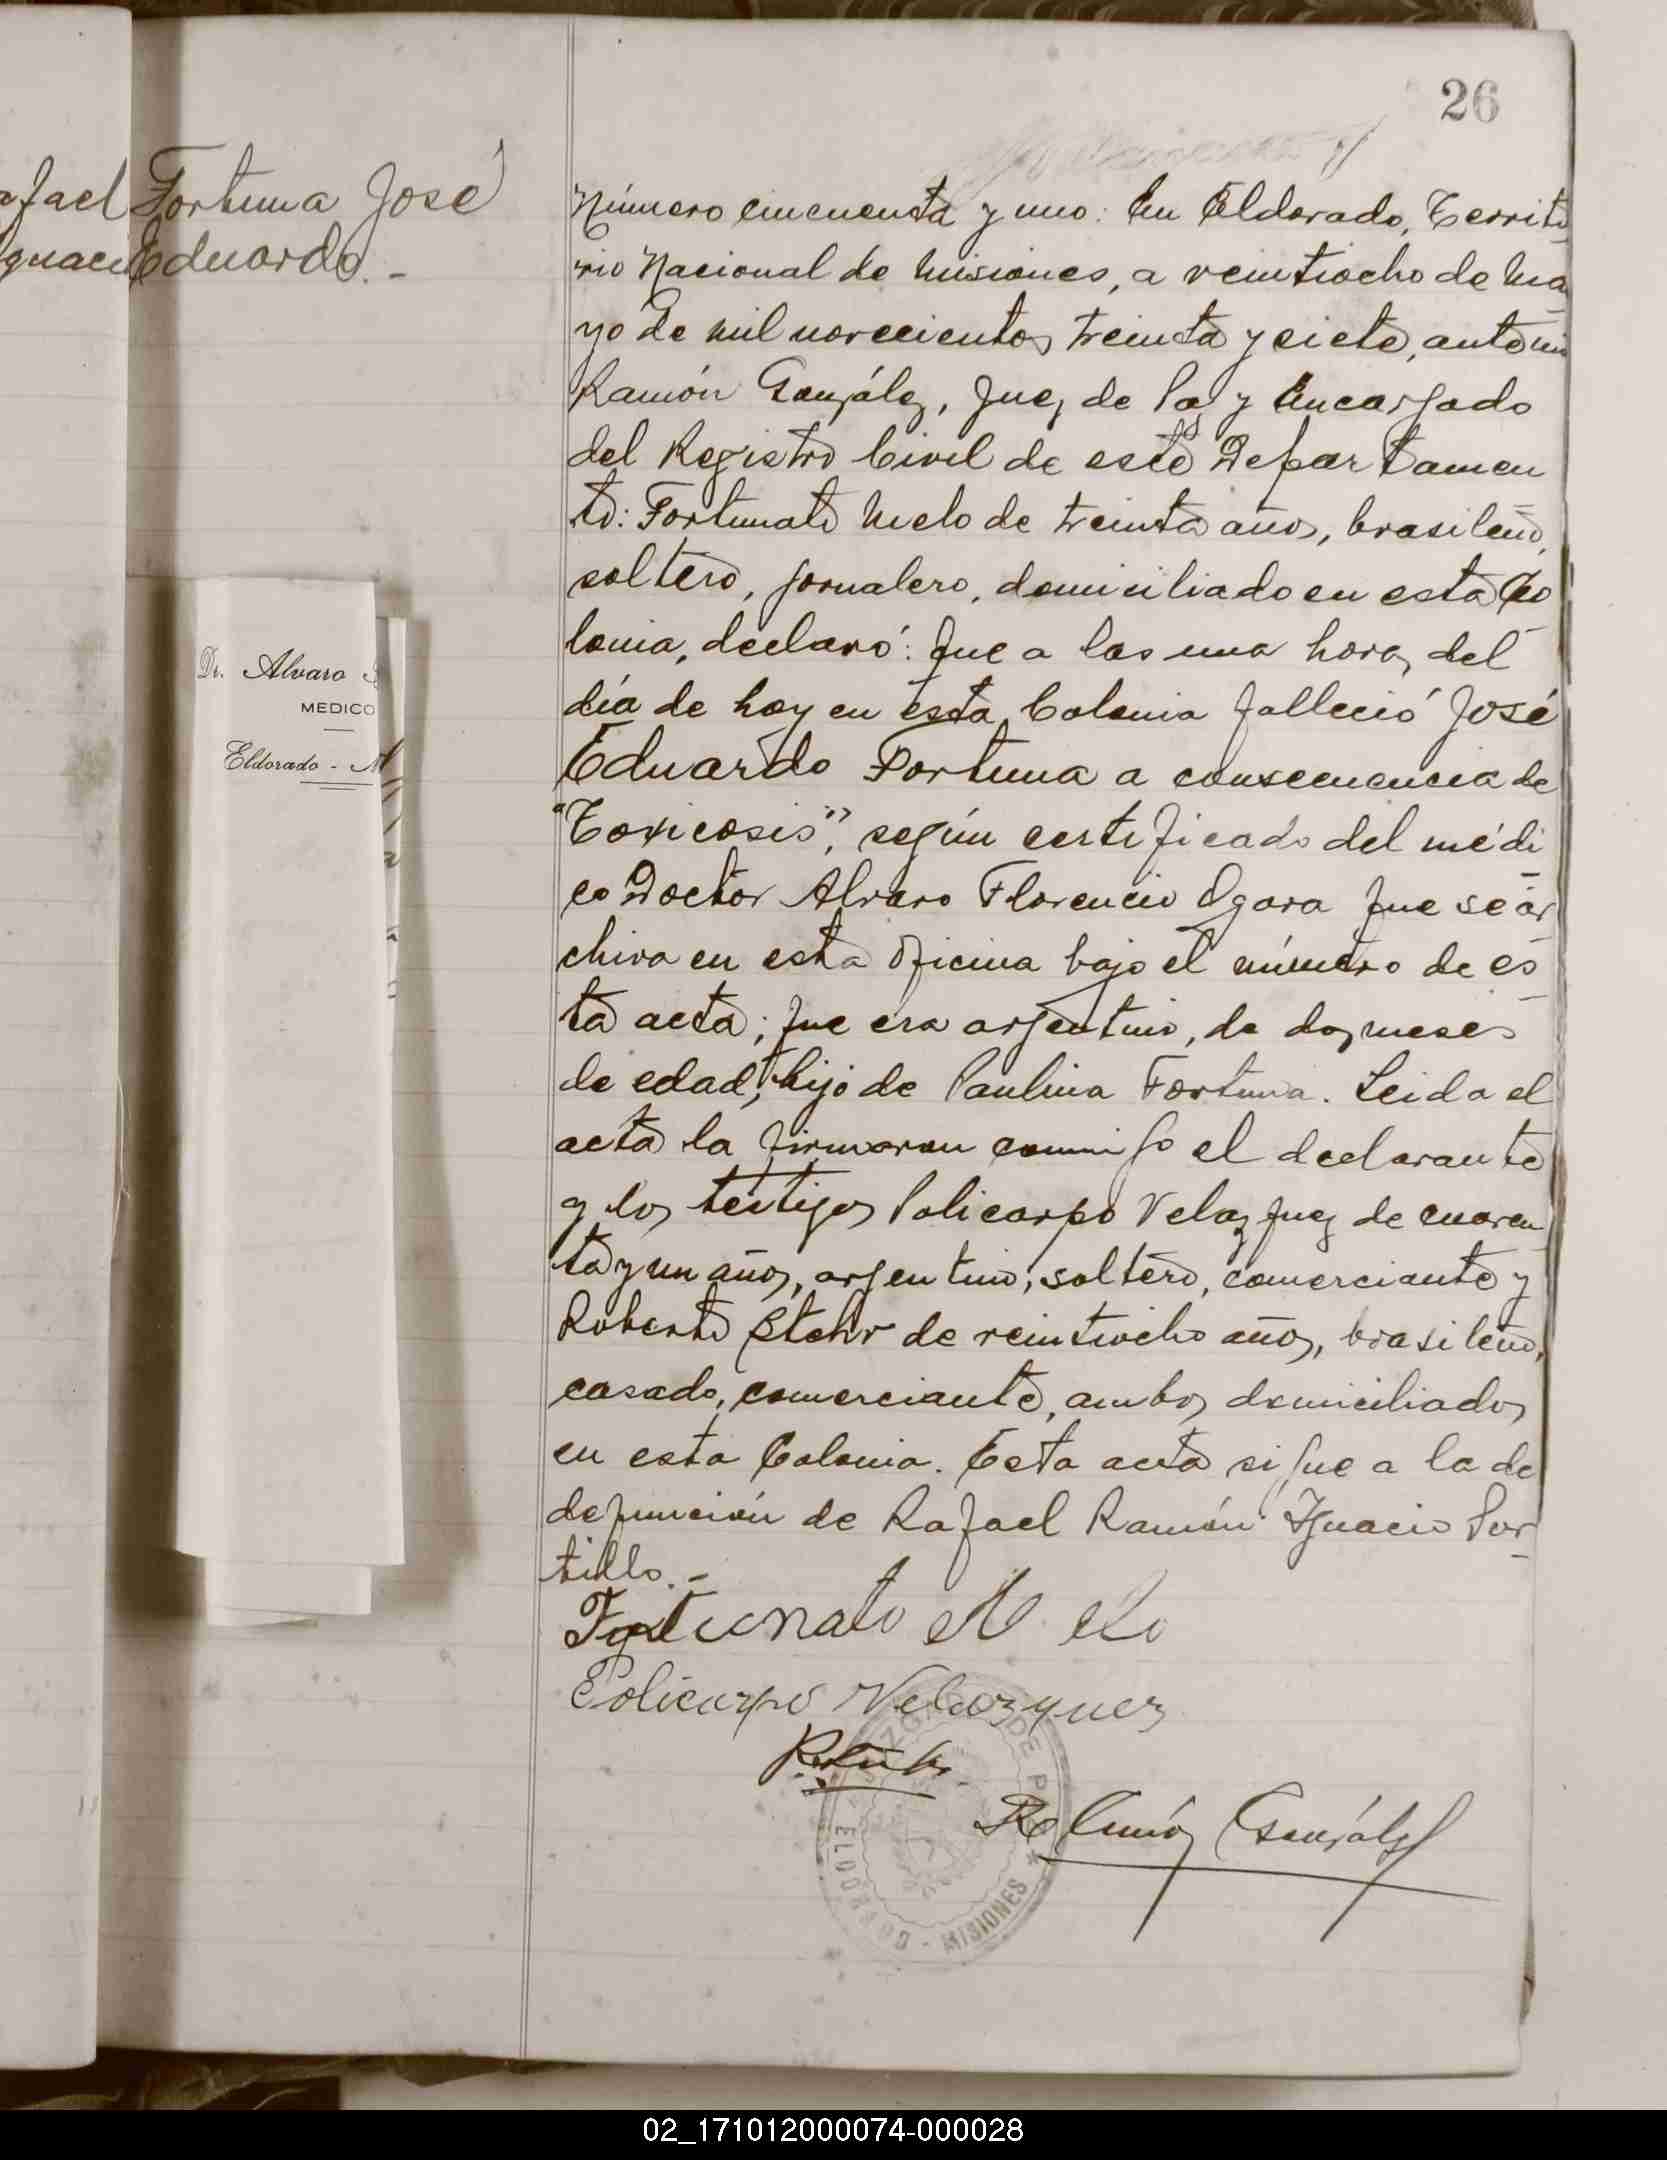 26
afael
gnacio
Fortuna José
Eduardo.-
Número cincuenta y uno: En Eldorado, Territo
rio Nacional de Misiones, a veintiocho de Ma
yo de mil novecientos treinta y siete, ante mi
Ramón González, Juez de Paz y Encargado
del Registro Civil de este Departamen
to: Fortunato Melo de treinta años, brasileño,
soltero, jornalero, domiciliado en esta Co
lonia, declaró: que a las una horas del
día de hoy en esta Colonia falleció José
Eduardo Fortuna a consecuencia de
"Toxicosis", según certificado del médi
co Doctor Alvaro Florencio Ogara que se ar
chiva en esta Oficina bajo el número de es
ta acta; que era argentino, de dos meses
de edad, hijo de Paulina Fortuna. Leida el
acta la firmaron conmigo el declarante
y los testigos Policarpo Velazquez de cuaren
ta y un años, argentino, soltero, comerciante y
Roberto Stehr de veintiocho años, brasileño,
casado, comerciante, ambos domiciliados
en esta Colonia. Esta acta sigue a la de
defunción de Rafael Ramón Ignacio Por
tillo.-
Fortunato Melo
Policarpo Velazquez
Ramón González
JUZGADO DE PAZ
ELDORADO - MISIONES
Dr. Alvaro
MEDICO
Eldorado - M
02_171012000074-000028